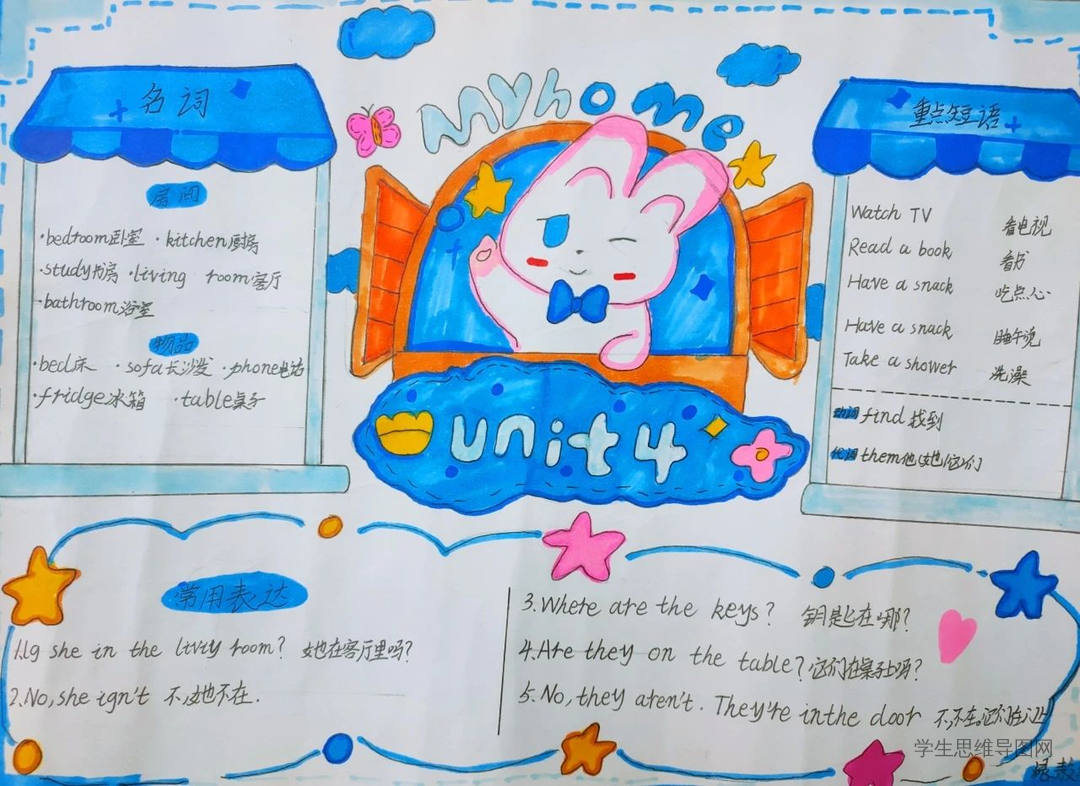 My home
unit 4
名词
房间
·bedroom卧室 ·kitchen厨房
·study书房 ·living room客厅
·bathroom浴室
物品
·bed床 ·sofa长沙发 ·phone电话
·fridge冰箱 ·table桌子
重点短语
Watch TV 看电视
Read a book 看书
Have a snack 吃点心
Have a snack 睡午觉
Take a shower 洗澡
动词 find 找到
代词 them他(她它)们
常用表达
1.Ig she in the liviy room? 她在客厅里吗?
2.No,she ign't 不,她不在.
3.Where are the keys? 钥匙在哪?
4.Are they on the table?它们在桌子上吗?
5.No,they aren't. They're inthe door 不,不在。它们在门上
学生思维导图网